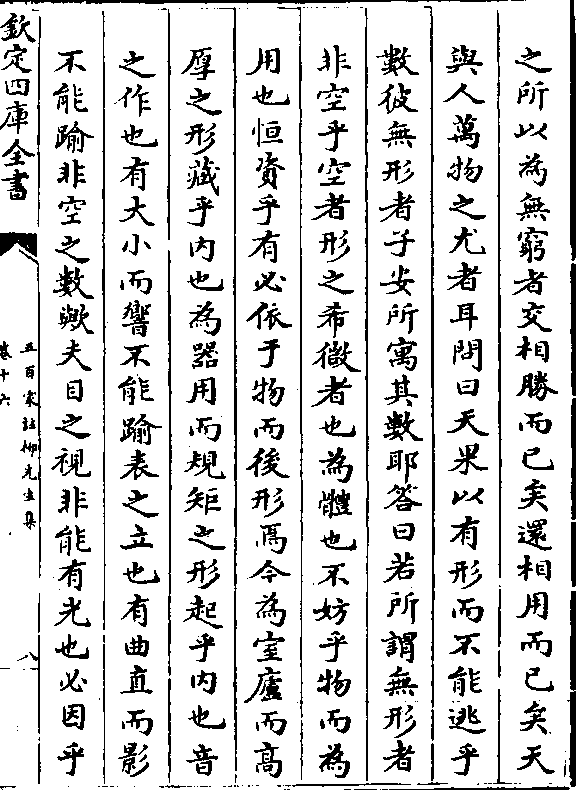 之所以為無窮者交相勝而已矣還相用而已矣天
與人萬物之尤者耳問曰天果以有形而不能逃乎
數彼無形者子安所寓其數耶答曰若所謂無形者
非空乎空者形之希微者也為體也不妨乎物而為
用也恒資乎有必依于物而後形焉今為室廬而高
厚之形藏乎内也為器用而規矩之形起乎内也音
之作也有大小而響不能踰表之立也有曲直而影
不能踰非空之數歟夫目之視非能有光也必因乎
欽定四庫全書
五百家註柳先生集
卷十六
八